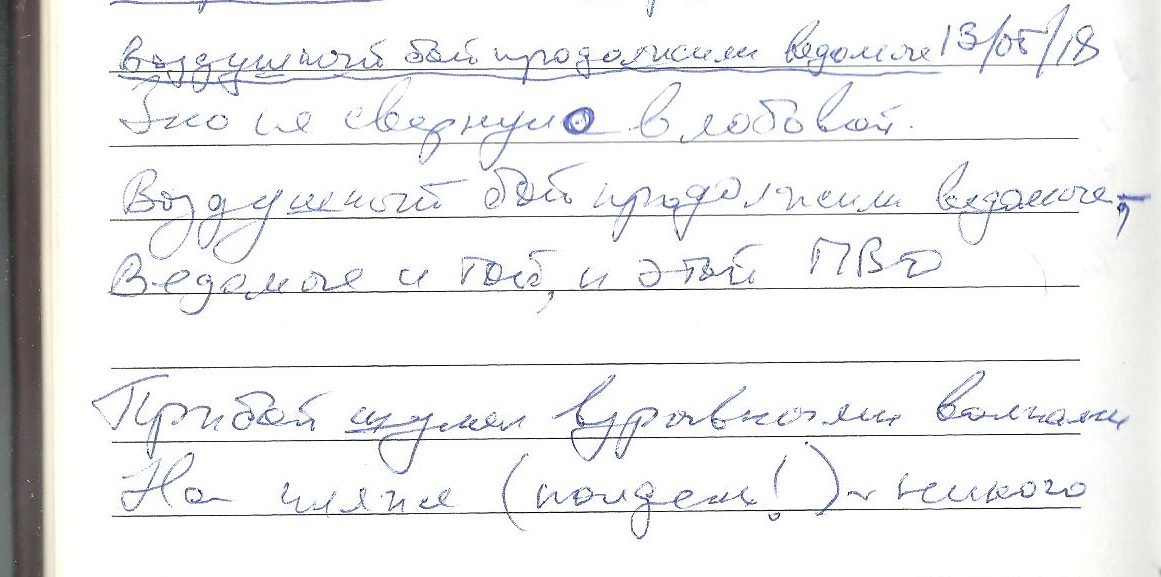 Воздушный бой продолжили ведомые 13/05/18
Никто не свернул в лобовой.
Воздушный бой продолжили ведомые,
Ведомые и той, и этой ПВО
Прибой шумел взрывными волнами
На пляже (полдень!) ~ никого